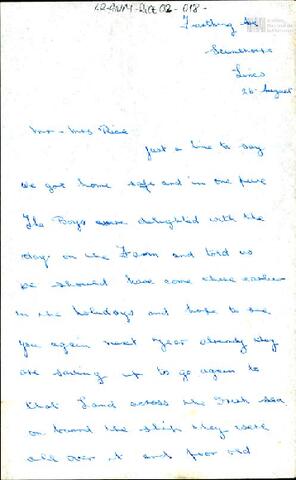 Scunthorpe
Lincs
26 August
Mr - Mrs Rice
Just a line to say
we got home safe and in one piece
The Boys were delighted with the
days on the Farm and told us
we should have come there earlier
in the holidays and hope to see
you again next year already they
are saving up to go again to
that Land across the Irish sea
on board the ship they were
all over it and poor old